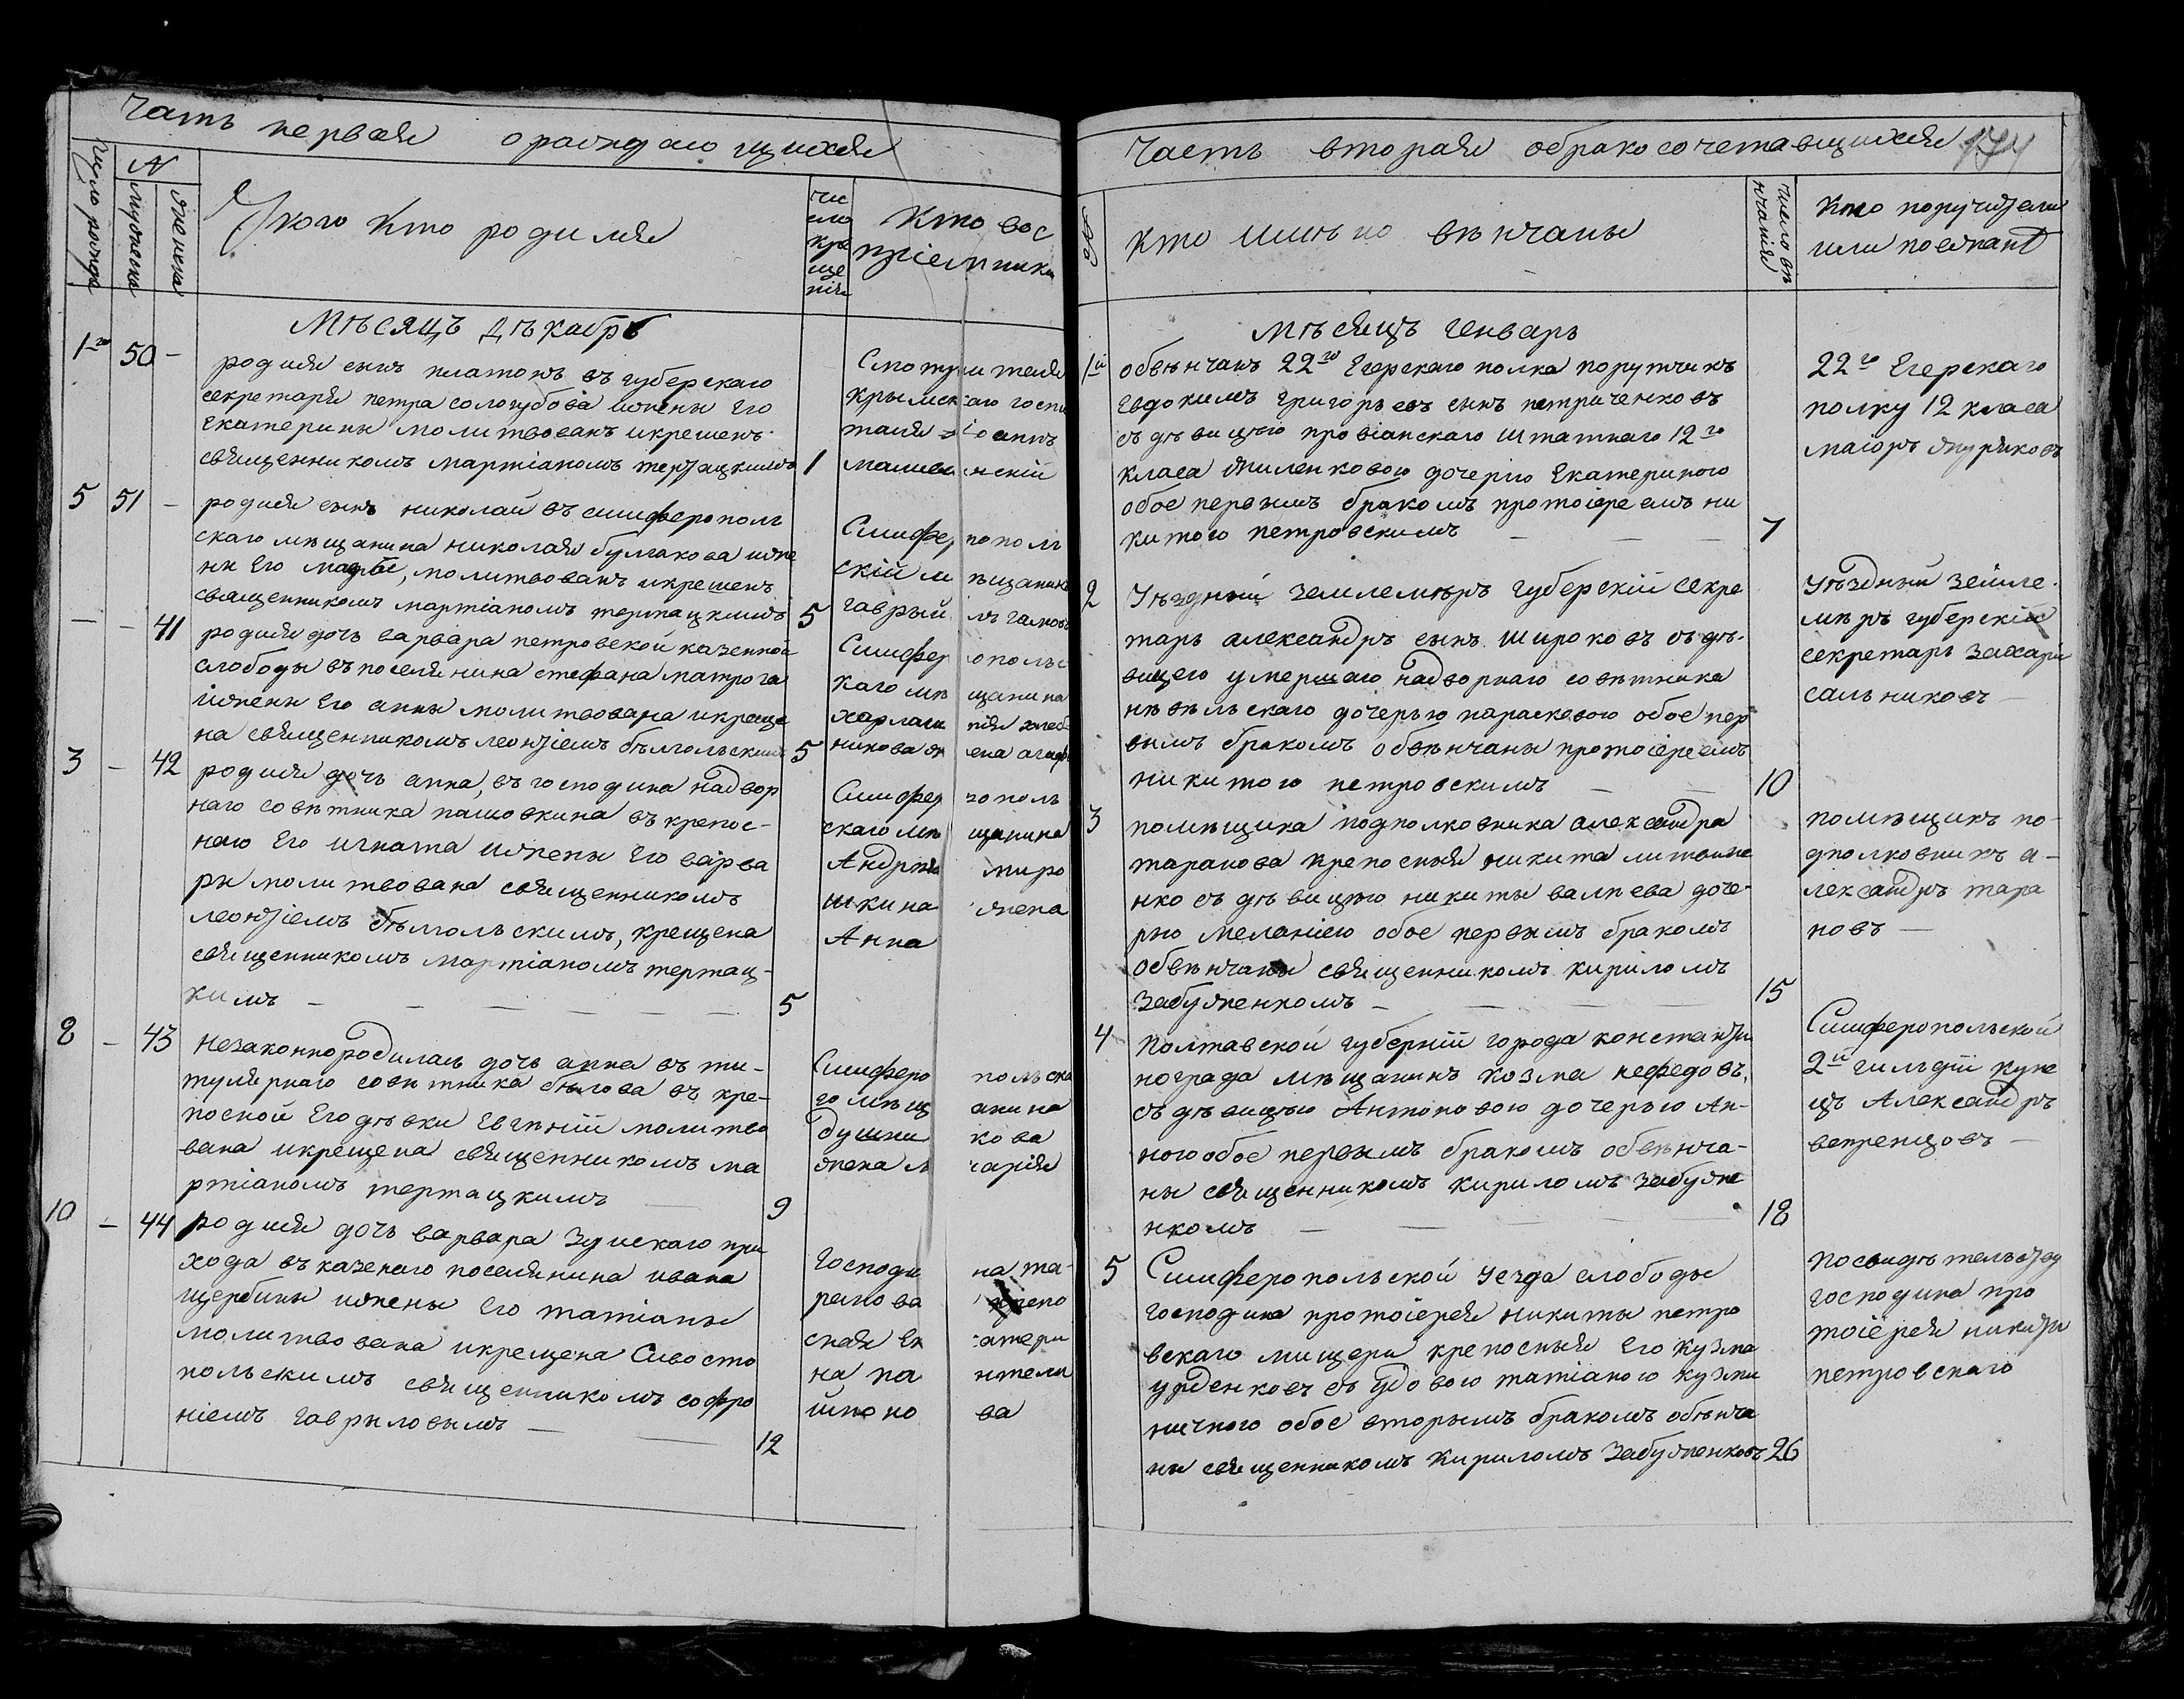 Часть первая о раождаю щихся
Число рожде
N
мужеска
женска
У кого кто родился
чи
сло
кры
ще
нія
Кто вос
пріемники
Мѣсяцъ дѣкабрь
1го 50 —
родился сынъ платонъ въ губерскаго
секретаря петра сологубова ижены Его
Екатерины молитвованъ икрешенъ
священникомъ мартіаномъ тертацкимъ 1
Смотрителя
крымскаго госпи
таля Іоаннъ
малиевинскій
5 51 —
родился сынъ николай въ симферополь
скаго мѣщанина николая булгакова ижe
ны Его молитвованъ икрешенъ
священникомъ мартіаномъ тертацкимъ 5
Симферпополь
скій мѣщанинъ
гаврыйлъ
— — 41
родился дочъ варвара петровской казенной
слободы въ поселянина стефана матрога
ижены Его анны молитвована икреще
на священникомъ леонтіемъ бѣлгольскимъ 5
Симферопольс
каго мѣщанина
харлампія
никова жена агаф
3 — 42
родился дочъ анна, въ господина надвор
наго совѣтника пашовкина въ крепос-
наго Его игната ижены Его варва
ры молитвована священникомъ
леонтіемъ бѣлгольскимъ, крещена
священникомъ мартіаномъ тертац-
кимъ — — — — — — 5
Симферополь
скаго мѣщанина
Андрѣя миро
шкина жена
Анна
8 — 43
незаконнородилась дочь анна въ ти-
тулярнаго совѣтника бѣлова въ кре-
посной Его дѣвки Евгѣній молитво
вана икрещена священникомъ ма
ртіаномъ тертацкимъ — 9
Симферопольска
го мѣщанина
душникова
жена марія
10 — 44
родился дочъ варвара Зуискаго при
хода въ казенаго поселянина ивана
щербины ижены Его татіаны
молитвована икрещена Сивосто
польскимъ священникомъ софро
ніемъ гавриловымъ — — 12
Господина та-
ранова крепо
сная Екатери
на пантели
ймонова
Часть вторая обрако сочетавщихся 174
кто иминъно вѣнчаны
число вѣ
нчанія
Кто поручители
или поезжанѣ
мѣсяцъ генварь
1й
обвѣнчанъ 22го Егерскаго полка порутчикъ
Евдокимъ григорьевъ сынъ петриченковъ
съ дѣвицѣю провіанскаго штатнаго 12го
класа жиленковою дочерію Екатериною
обое первымъ бракомъ протоіереемъ ни
китою петровскимъ — — — 7
22го Егерскаго
полку 12 класа
маіоръ журяковъ
2
Уѣздный землемѣръ губерскій секре
тарь александръ сынъ широковъ съ дѣ-
вицею умершаго надворнаго совѣтника
нѣвѣльскаго дочерью параскевою обое пер
вымъ бракомъ обвѣнчаны протоіереемъ
никитою петровскимъ — — 10
Уѣздный земле-
мѣръ губерскій
секретарь захарій
сальниковъ —
3
помѣщика подполковника александра
таранова крепосный никита литвине
нко съ дѣвицѣю никиты валнева доче-
рью меланіею обое первымъ бракомъ
обвѣнчаны священникомъ кириломъ
Забужненкомъ — — — 15
помѣщикъ по-
дполковникъ а-
лександръ тара
новъ —
4
Полтавской губерній города константи
нограда мѣщанинъ козма нефедовъ,
съ дѣвицѣю Антоновою дочерью Ан-
ною обое первымъ бракомъ обвѣнча-
ны священникомъ кириломъ забужне
нкомъ — — — 18
Симферопольской
2й гильдій купе
цъ Александръ
вепренцовъ —
5
Симферопольской уезда слободы
господина протоіерея никиты петро
вскаго мищери крепосный Его кузма
съ удовою татіаною кузми
ничною обое вторымъ бракомъ обвѣнча
ны священникомъ кириломъ забужненковъ 26
посвидѣтельству
господина про
тоіерея никиты
петровскаго